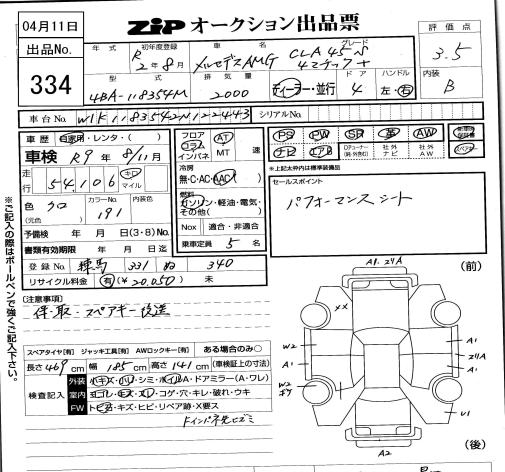 04月11日
ZiP オークション出品票
出品No.
334
年式 初年度登録 車名 グレード 評価点
R 2年8月 メルセデスAMG CLA45S 4マチック+ 3.5
型式 排気量 ドア ハンドル 内装
4BA-118354M 2000 ディーラー・並行 4 左・右 B
車台No. W1K1183542N122443 シリアルNo.
車歴 自家用・レンタ・( )
車検 R9年 8/11月
走行 54,106 キロ マイル
色 クロ カラーNo. 191 内装色
(元色)
予備検 年 月 日(3・8)No.
書類有効期限 年 月 日迄
登録No. 練馬 331 ぬ 340
リサイクル料金 有(¥20,050) 未
フロア コラム インパネ AT MT 速
冷房 無・C・AC・AAC
燃料 ガソリン・軽油・電気・その他( )
Nox 適合・非適合
乗車定員 5 名
PS PW SR 革 AW
ナビ エアB Dチューナー 社外ナビ 社外AW
※上記太枠内は標準装備品
セールスポイント
パフォーマンスシート
※ご記入の際はボールペンで強くご記入下さい。
(注意事項)
保・取・スペアキー後送
スペアタイヤ[有] ジャッキ工具[有] AWロックキー[有] ある場合のみ○
長さ469cm 幅185cm 高さ141cm (車検証上の寸法)
検査記入
外装 小キズ・凹・シミ・ホイルA・ドアミラー(A・ワレ)
室内 ヨゴレ・キズ・スレ・コゲ・穴・キレ・破れ・ウキ
FW トビA・キズ・ヒビ・リペア跡・X要ス
ドインパネ先ヒズミ
(前)
A1.2イA
XX
W2
A1
A1
2イA
A1
W2
キワ
U1
A2
(後)